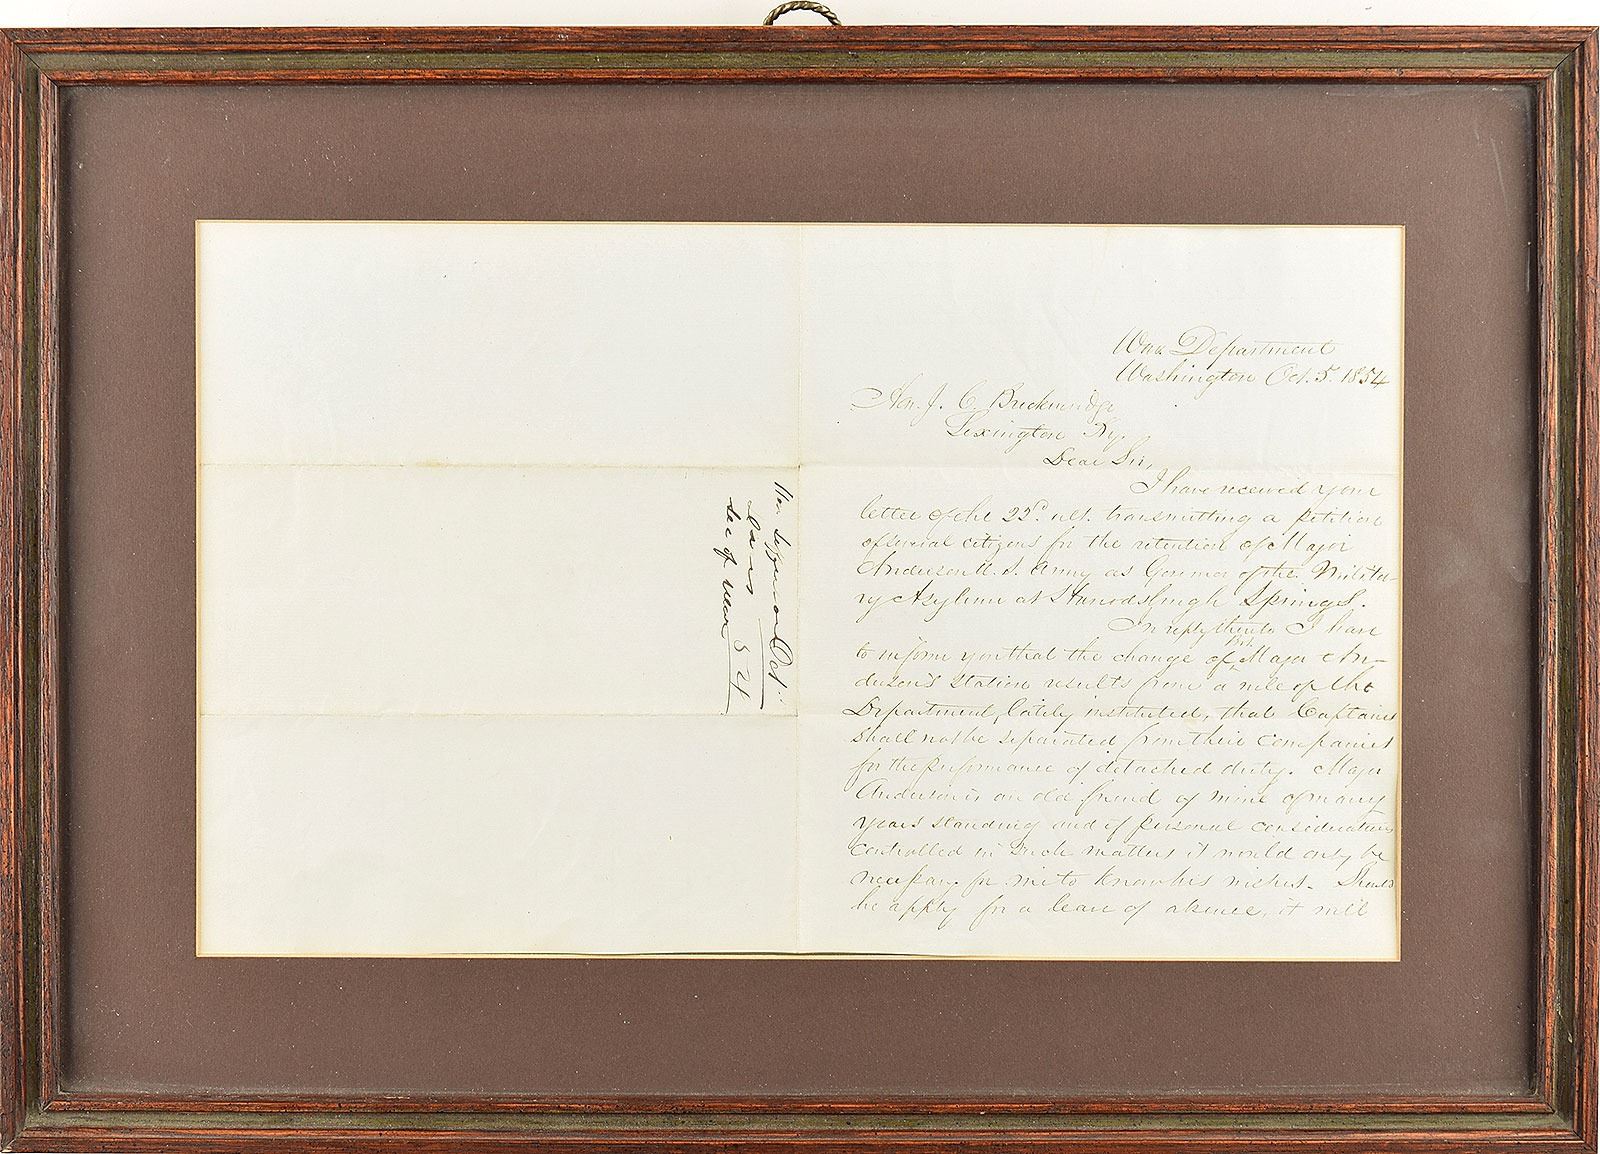 War Department
Washington Oct. 5. 1854
Hon. J. C. Breckenridge
Lexington Ky.
Dear Sir,
I have received your
letter of the 22d. ult. transmitting a petition
of several citizens for the retention of Major
Anderson U. S. Army as Governor of the Milita-
ry Asylum at Harrodsburgh Springs.
In reply thereto I have
to inform you that the change of Bvt. Major An-
derson's station results from a rule of the
Department, lately instituted, that Captains
shall not be separated from their companies
for the performance of detached duty. Major
Anderson is an old friend of mine of many
years standing and if personal considerations
controlled in such matters it would only be
necessary for me to know his wishes. Should
he apply for a leave of absence, it will
Hon Jefferson
Davis Oct
Sec of War 54